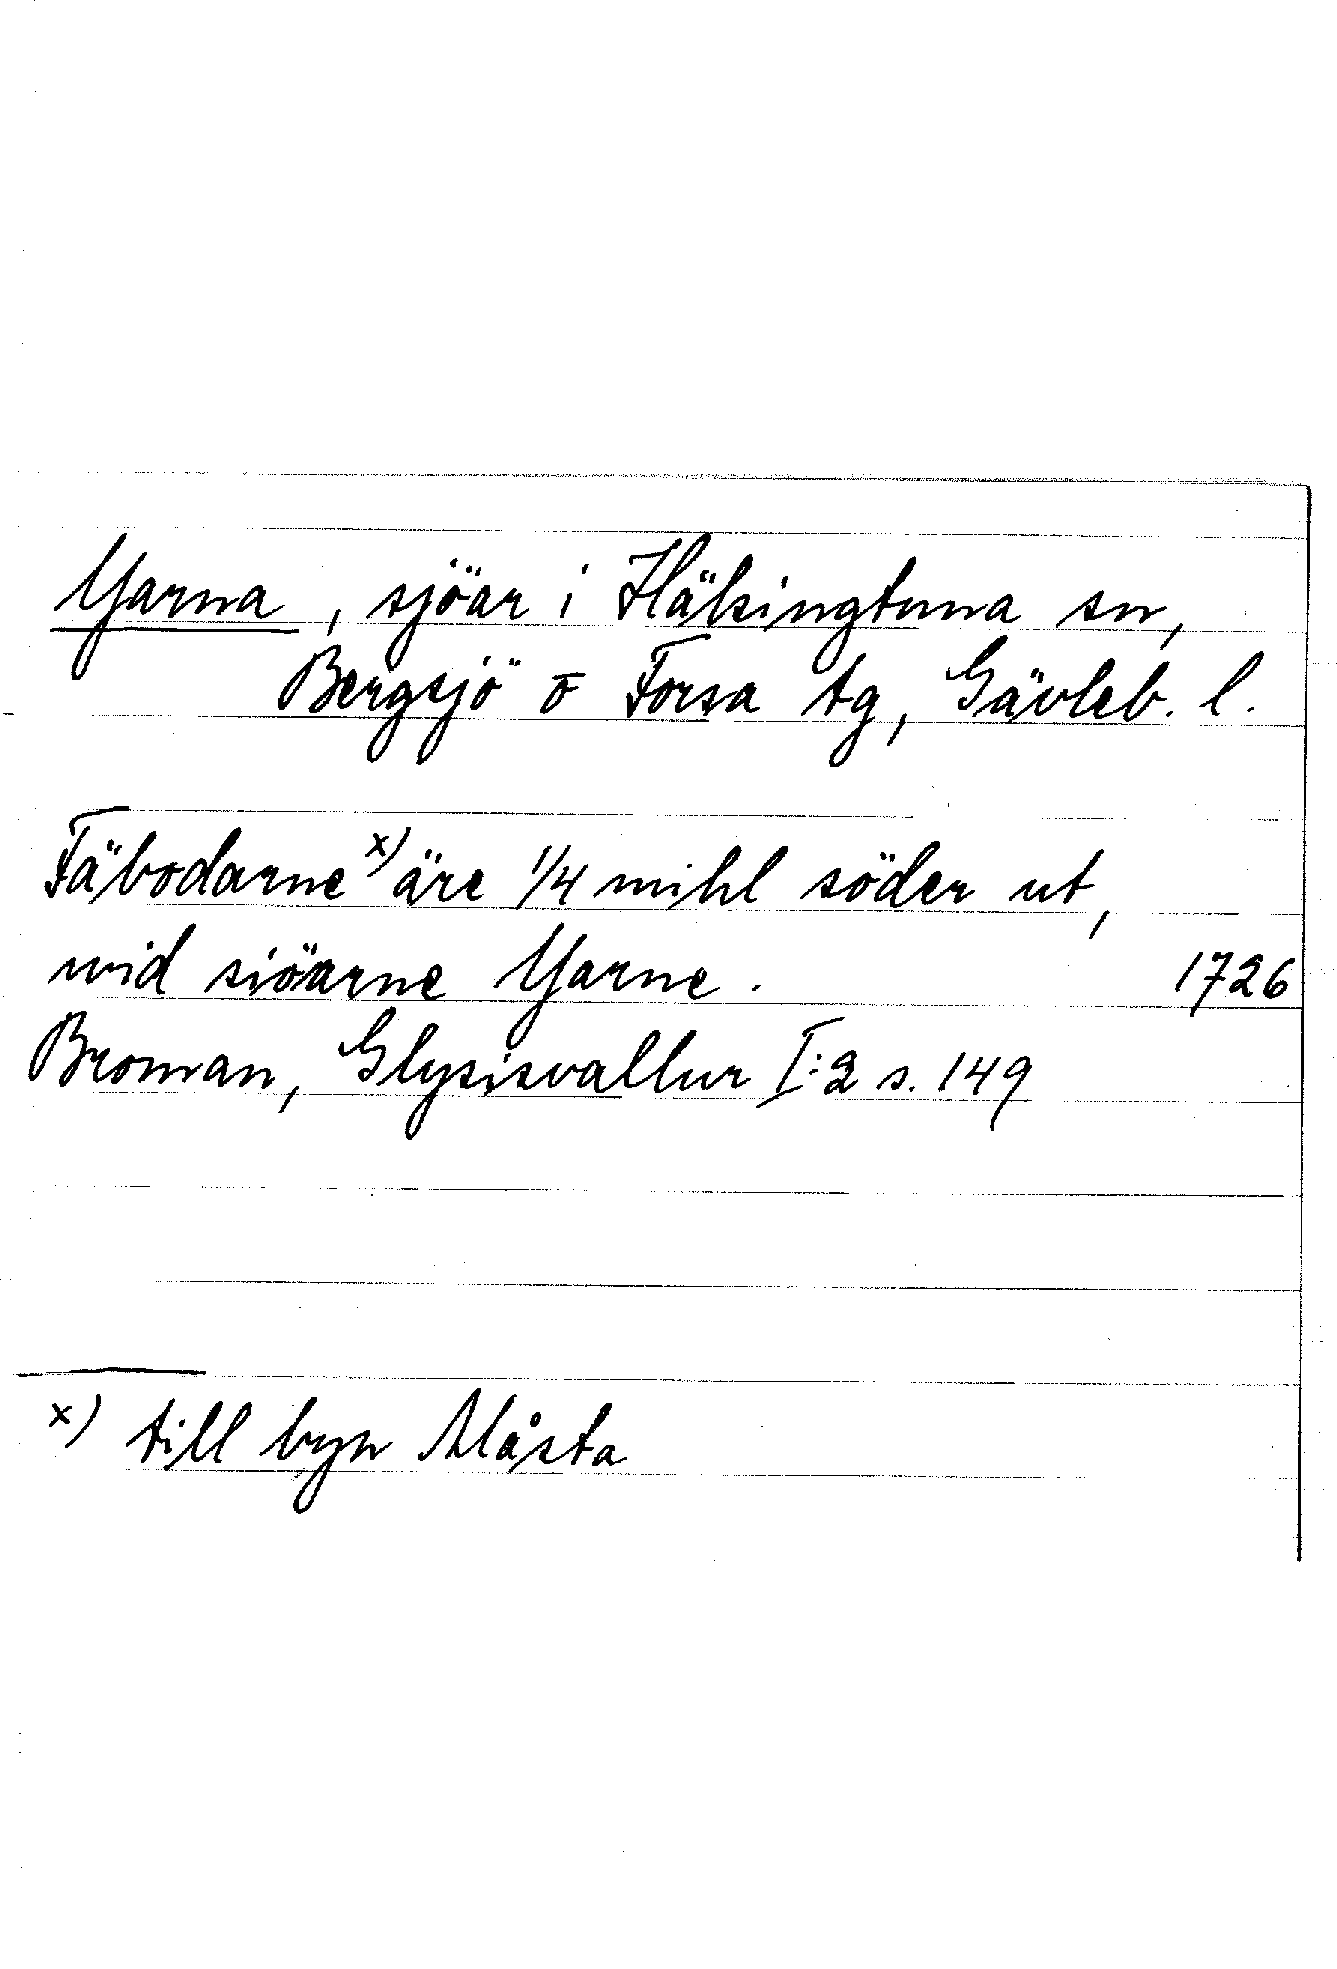 Yarna, sjöar i Hälsingtuna sn,
Bergsjö o Forsa tg, Gävleb. l.
Fäbodarne x) äre 1/4 mihl söder ut,
wid siöarne Yarne. 1726
Broman, Glysisvallur I:2 s. 149
x) till byn Måsta